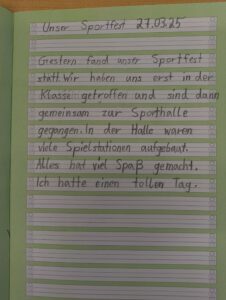 Unser Sportfest 27.03.25
Gestern fand unser Sportfest
statt. Wir haben uns erst in der
Klasse getroffen und sind dann
gemeinsam zur Sporthalle
gegangen. In der Halle waren
viele Spielstationen aufgebaut.
Alles hat viel Spaß gemacht.
Ich hatte einen tollen Tag.